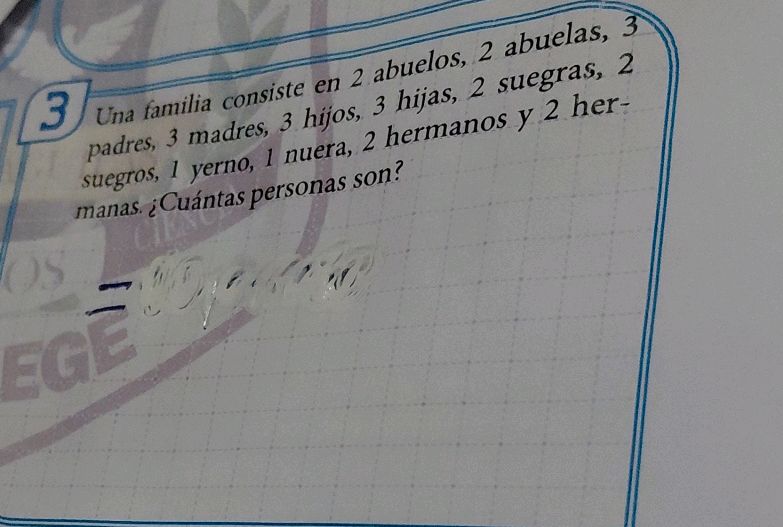 3 Una familia consiste en 2 abuelos, 2 abuelas, 3
padres, 3 madres, 3 hijos, 3 hijas, 2 suegras, 2
suegros, 1 yerno, 1 nuera, 2 hermanos y 2 her-
manas. ¿Cuántas personas son?
CIENCIA
OS
=
EGE